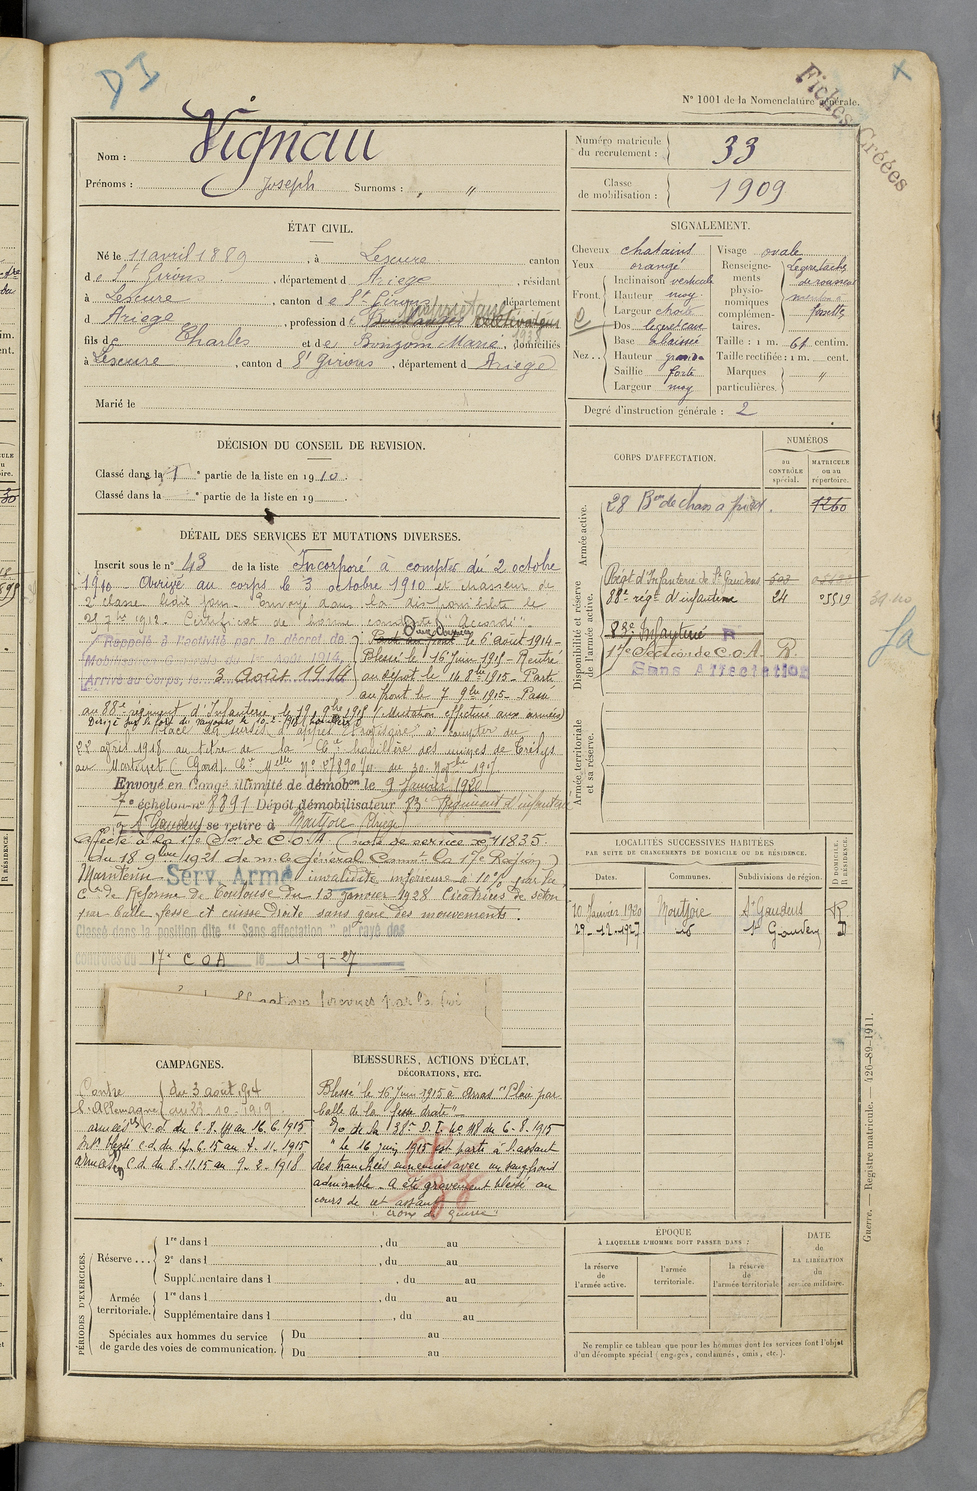 DI
Fiches Créées
N° 1001 de la Nomenclature générale.
Nom : Vignau
Prénoms : Joseph Surnoms : „ "
Numéro matricule du recrutement : 33
Classe de mobilisation : 1909
ÉTAT CIVIL.
Né le 11 avril 1889, à Lescure canton
de St Girons, département d Ariege, résidant
à Lescure, canton de St Girons, département
d Ariege, profession de
1938
fils de Charles et de Bougom Marie, domiciliés
à Lescure, canton d St Girons, département d Ariege
Marié le
SIGNALEMENT.
Cheveux chatains
Yeux orangé
Front. Inclinaison verticale
Hauteur moy.
Largeur
Nez... Dos leg rect cave
Base abaissé
Hauteur grande
Saillie forte
Largeur moy
Visage ovale
Renseignements physionomiques complémentaires.
Taille : 1 m. 61 centim.
Taille rectifiée : 1 m. cent.
Marques particulières. "
Degré d'instruction générale : 2
DÉCISION DU CONSEIL DE REVISION.
Classé dans la 1 e partie de la liste en 1910.
Classé dans la e partie de la liste en 19
CORPS D'AFFECTATION.
NUMÉROS
au CONTRÔLE spécial.
MATRICULE ou au répertoire.
Armée active.
28 Bon de chas à pied. 1260
Disponibilité et réserve de l'armée active.
Régt d'Infanterie de St Gaudens
88e régt d'infanterie 24 5519
83e Infanterie R
17e Section de C.O.A. R.
Sans Affectation
Armée territoriale et sa réserve.
DÉTAIL DES SERVICES ET MUTATIONS DIVERSES.
Inscrit sous le n° 43 de la liste Incorporé à compter du 2 octobre
1910. Arrivé au corps le 3 octobre 1910 et chasseur de
2e classe ledit jour. Envoyé dans la disponibilité le
25 7bre 1912. Certificat de bonne conduite Accordé.
Rappelé à l'activité par le décret de
Mobilisation Générale du 1er Août 1914
Arrivé au Corps, le 3 août 1914
le 6 août 1914-
Blessé le 16 Juin 1915 - Rentré
au dépôt le 14 8bre 1915 - Parti
au front le 7 9bre 1915 - Passé
au 88e régiment d'Infanterie le 19 9bre 1915 (Mutation effectuée aux armées)
Placé en sursis d'appel à compter du
22 avril 1918 au titre de la Cie houillère des mines de Trélys
au Martinet (Gard). Cre Melle N° 27890 du 30 Novbre 1917
Envoyé en Congé illimité de démobon le 9 Janvier 1920
7e échelon n° 8891 Dépôt démobilisateur 83e Régiment d'infanterie
à St Gaudens se retire à Montjoie (Ariège)
Affecté à la 17e Son de C.O.A (note de service n° 11835
du 18 9bre 1921 de m. le Général Commt la 17e Région)
Maintenu Serv. Armé invalidité inférieure à 10% par la
Con de Réforme de Toulouse du 13 janvier 1928. Cicatrices de séton
par balle fesse et cuisse droite sans gêne des mouvements.
Classé dans la position dite "Sans affectation" et rayé des
contrôles du 17e COA le 1-9-27
prévues par la loi
LOCALITÉS SUCCESSIVES HABITÉES
PAR SUITE DE CHANGEMENTS DE DOMICILE OU DE RÉSIDENCE.
Dates. Communes. Subdivisions de région. D DOMICILE. R RÉSIDENCE.
10 Janvier 1920 Montjoie St Gaudens R
29-12-1927 id St Gaudens D
CAMPAGNES.
Contre l'Allemagne
du 3 août 1914
au 22-10-1919
armées c.d. du 6.8.14 au 16.6.1915
Int. blessé c.d. du 17.6.15 au 7.11.1915
armées c.d. du 8.11.15 au 9.2.1918
BLESSURES, ACTIONS D'ÉCLAT,
DÉCORATIONS, ETC.
Blessé le 16 Juin 1915 à Arras "Plaie par
balle de la fesse droite"
O de la 38e D.I. du 6-8-1915
"le 16 juin 1915 est parti à l'assaut
des tranchées ennemies avec un sang froid
admirable. A été grièvement blessé au
cours de cet assaut
croix de guerre
PÉRIODES D'EXERCICES.
Réserve... 1re dans l , du au
2e dans l , du au
Supplémentaire dans l , du au
Armée territoriale. 1re dans l , du au
Supplémentaire dans l , du au
Spéciales aux hommes du service de garde des voies de communication. Du au
Du au
ÉPOQUE
À LAQUELLE L'HOMME DOIT PASSER DANS :
la réserve de l'armée active.
l'armée territoriale.
la réserve de l'armée territoriale
DATE de LA LIBÉRATION du service militaire.
Ne remplir ce tableau que pour les hommes dont les services font l'objet
d'un décompte spécial (engagés, condamnés, omis, etc.).
Guerre. — Registre matricule. — 426-89-1911.